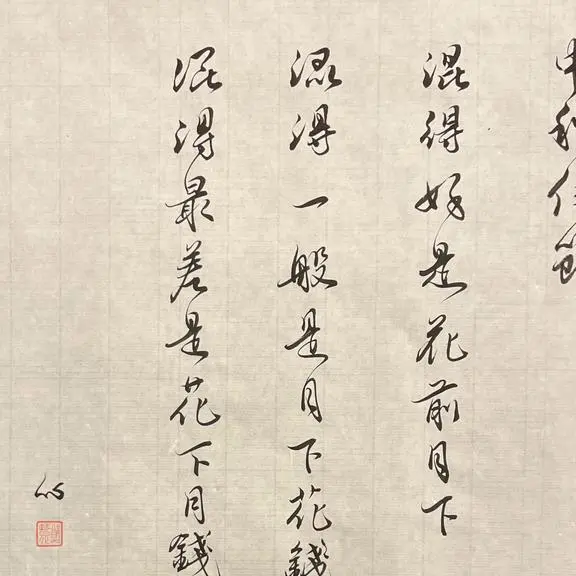 中秋佳節
混得好是花前月下
混得一般是月下花錢
混得最差是花下月錢